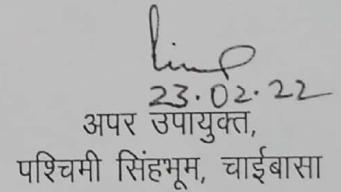 23.02.22
अपर उपायुक्त,
पश्चिमी सिंहभूम, चाईबासा